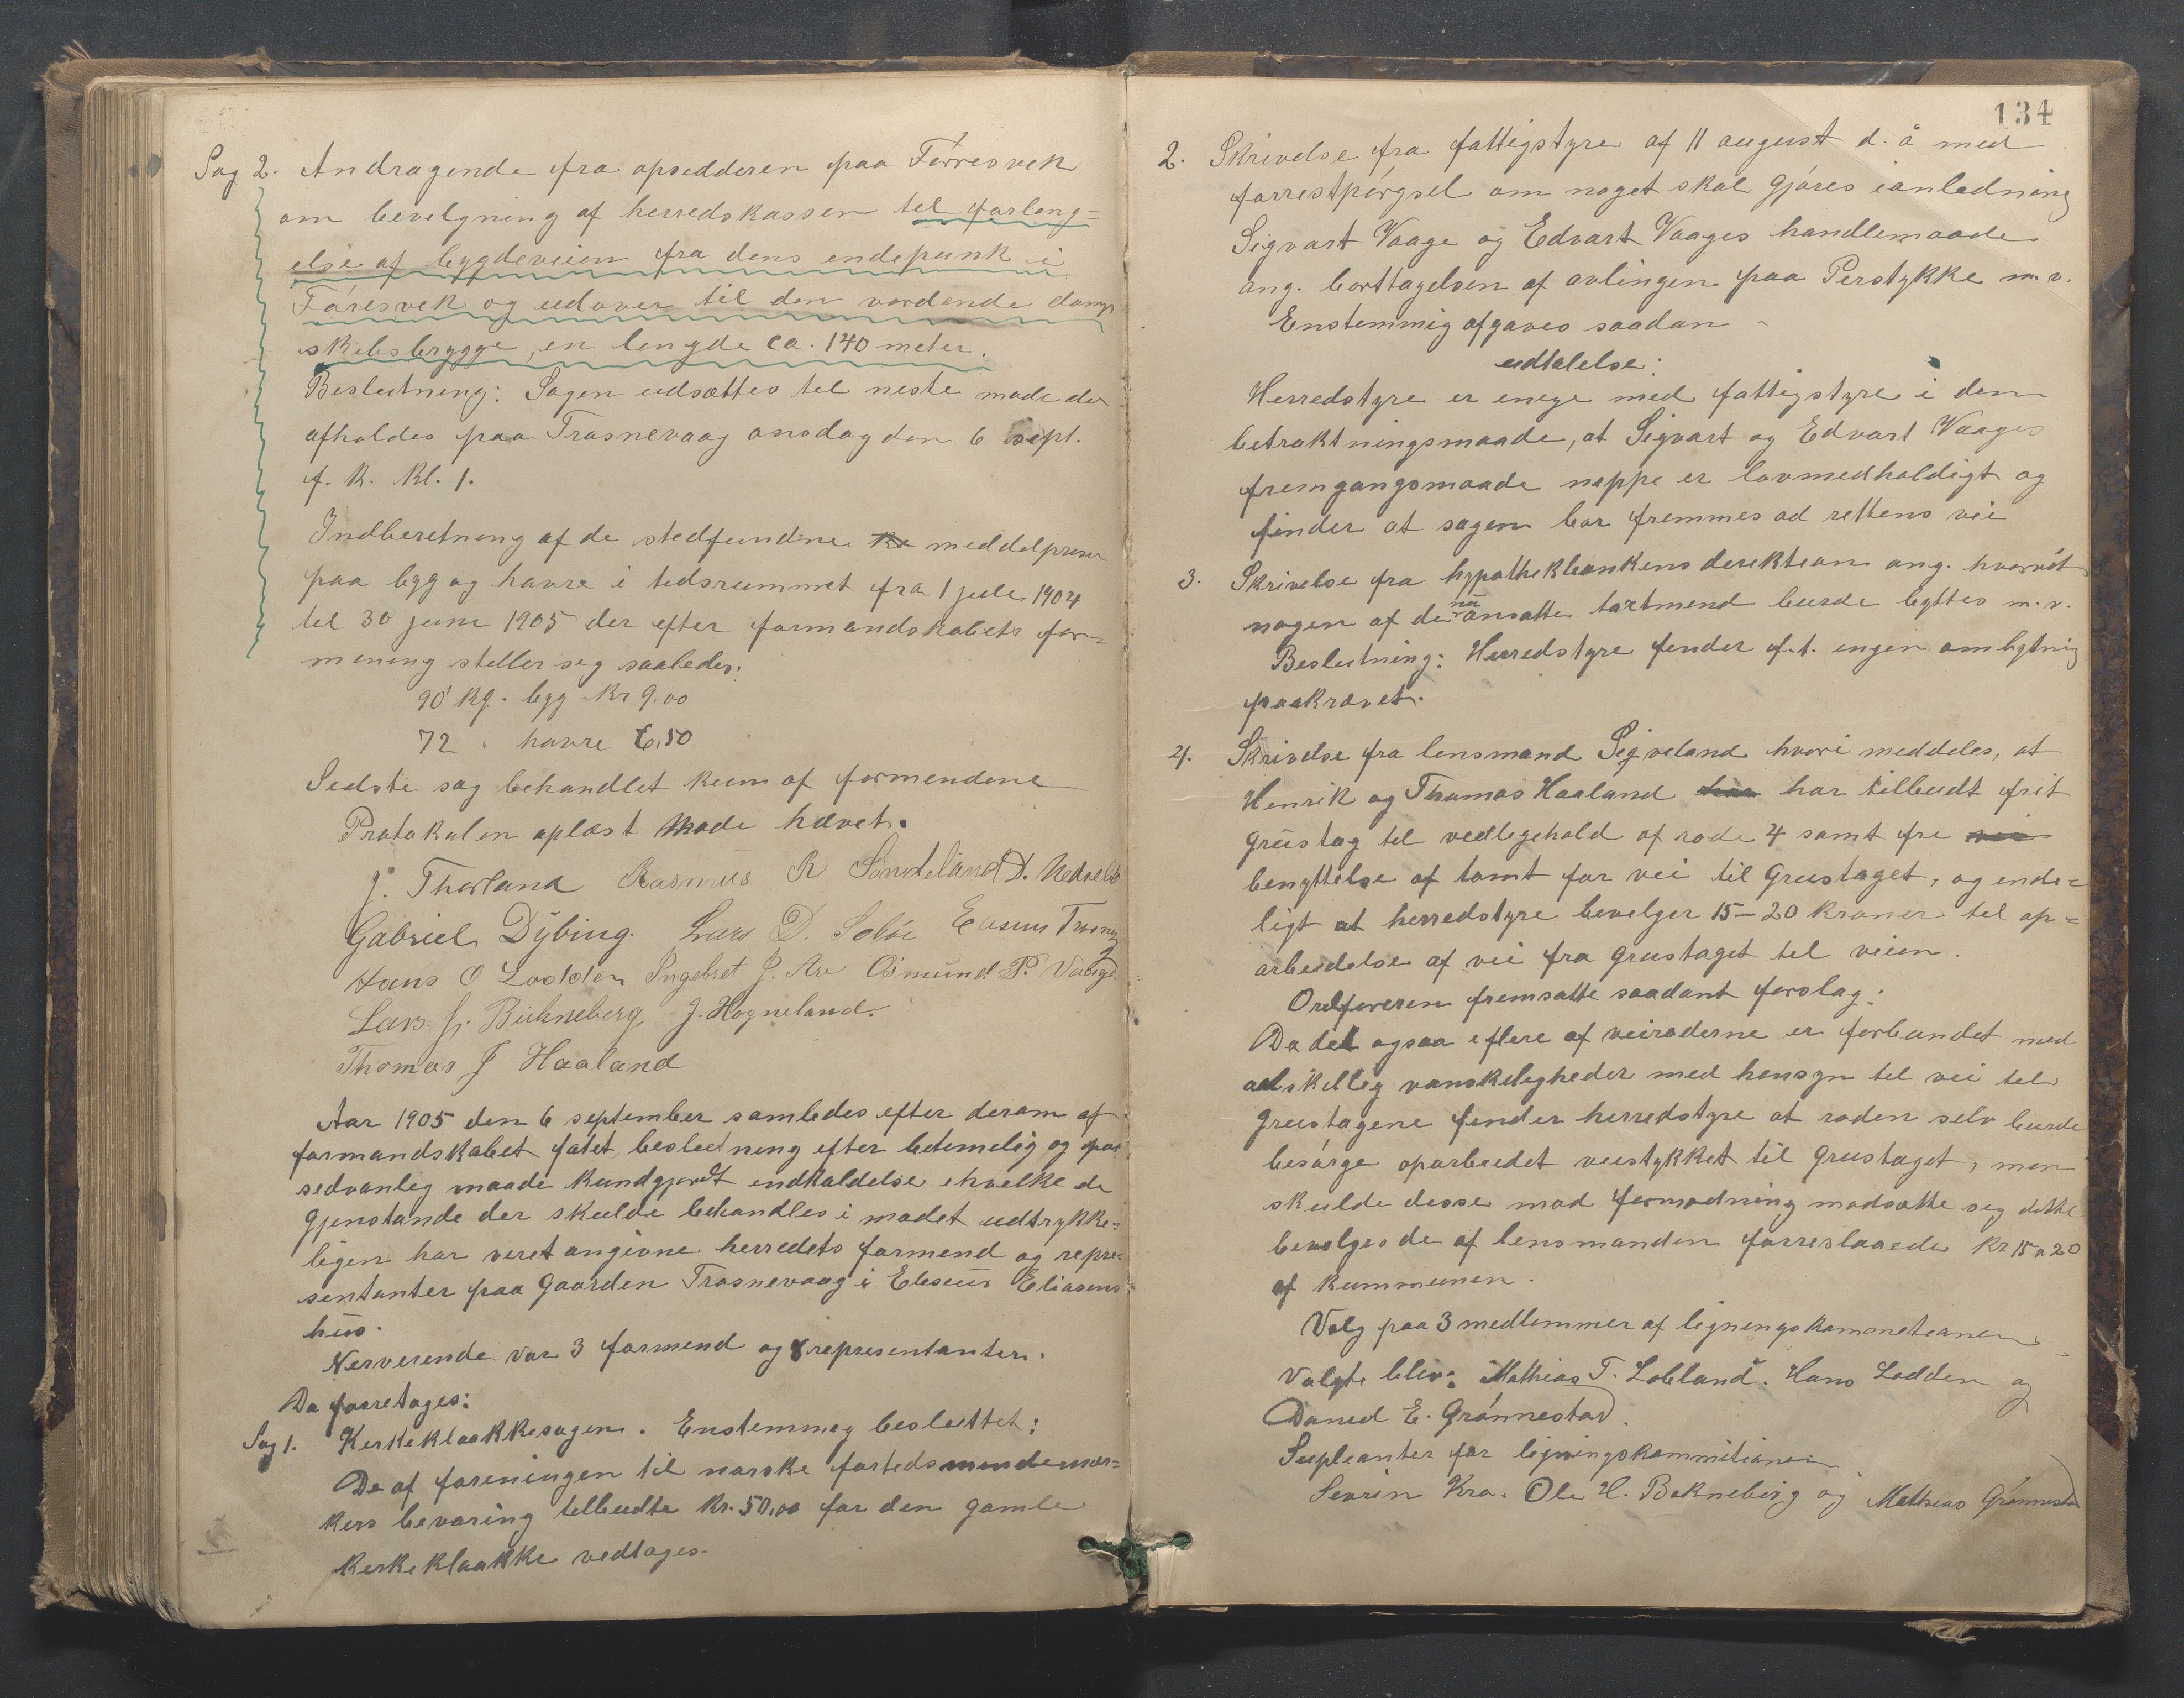 Sag 2. Andragende fra opsedderen paa Førresvek
om bevelgning af herredskassen tel forleng=
else af bygdeveien fra dens endepunk i
Føresvek og udover til den vordende damp
skebsbrygge, en lengde ca. 140 meter.
Beslutning: Sagen udsættes tel neste møde der
afholdes paa Trosnevaag onsdag den 6 sept.
f. k. kl. 1.
Indberetning af de stedfundne meddelpriser
paa bgg og havre i tedsrummet fra 1 jule 1904
tel 30 june 1905 der efter formandskabets for=
mening steller seg saaledes:
90 kg. bgg kr 9,00
72 " havre 6,50
Sedste sag behandlet kun af formendene
Protokolen oplæst Møde hævet.
J. Thorland Rasmus R Søndeland D.
Gabriel Dÿbing. Lars D.
Hans O Lodden Ingebret J. Are Osmund P. Vaage.
Lars J. Bukneberg J. Hogneland.
Thomas J Haaland
Aar 1905 den 6 september samledes efter derom af
formandskabet fatet beslutning efter betimelig og paa
sedvanleg maade kundgjordt indkaldelse i hvelke de
gjenstande der skulde behandles i mødet udtrykke=
ligen har veret angivne herredets formend og repre=
sentanter paa gaarden Trosnevaag i Eleseus Eliasens
hus.
Nerverende var 3 formend og 8 representanter.
Da forretages:
Sag 1. Kerkeklaakkesagen. Enstemmeg besluttet:
De af foreningen til norske forteds mindemer=
kers bevaring telbudte kr. 50,00 for den gamle
kerkeklaakke vedtages.
134
2. Skrivelse fra fattigstyre af 11 august d. å med
forrestpørgsel om noget skal gjøres ianledning
Sigvart Vaage og Edvart Vaages handlemaade
ang. borttagelsen af avlingen paa Perstykke m. v.
Enstemmig afgaves saadan
udtalelse:
Herredstyre er enege med fattigstyre i den
betraktningsmaade, at Sigvart og Edvart Vaages
fremgangsmaade neppe er lovmedholdigt og
finder at sagen bør fremmes ad rettens vei
3. Skrivelse fra hypothekbankens derektion ang. hvorvit
nogen af de nu ansatte taxtmend burde byttes m. v.
Beslutning: Herredstyre fender f. t. engen ombytning
paakrævet.
4. Skrivelse fra lensmand Sigveland hvori meddeles, at
Henrik og Thomas Haaland har tilbudt frit
grustag til vedlegehold af rode 4 samt fre
benyttelse af tomt for vei til grustaget, og ende=
ligt at herredstyre bevelger 15-20 kroner til op=
arbeidelse af vei fra grustaget tel veien.
Ordføreren fremsatte saadant forslag:
Da det ogsaa i flere af veiroderne er forbundet med
adskellig vanskeligheder med hensyn tel vei tel
grustagene fender herredstyre at roden selv burde
besørge oparbeidet veistykket til grustaget, men
skulde desse mod formodning modsætte seg dette
bevelges de af lensmanden forreslaaede kr 15 a 20
af kummunen.
Valg paa 3 medlemmer af legnengskommetionen
Valgte blev: Mathias T. Lobland. Hans Lodden og
Daned E. Grønnestad.
Supleanter for ligningskommitionen
Sevrin Kro. Ole H. Bokneberg og Mathias Grønnestad